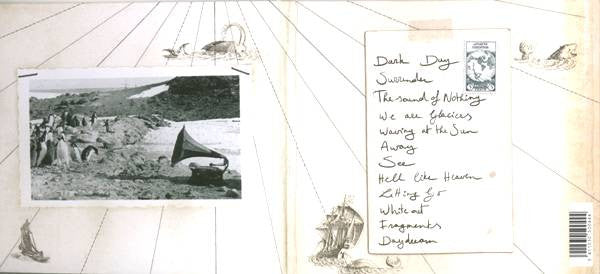 Dark Day
Surrender
The sound of Nothing
We are Glaciers
Waving at the Sun
Away
See
Hell like Heaven
Letting Go
White out
Fragments
Daydream